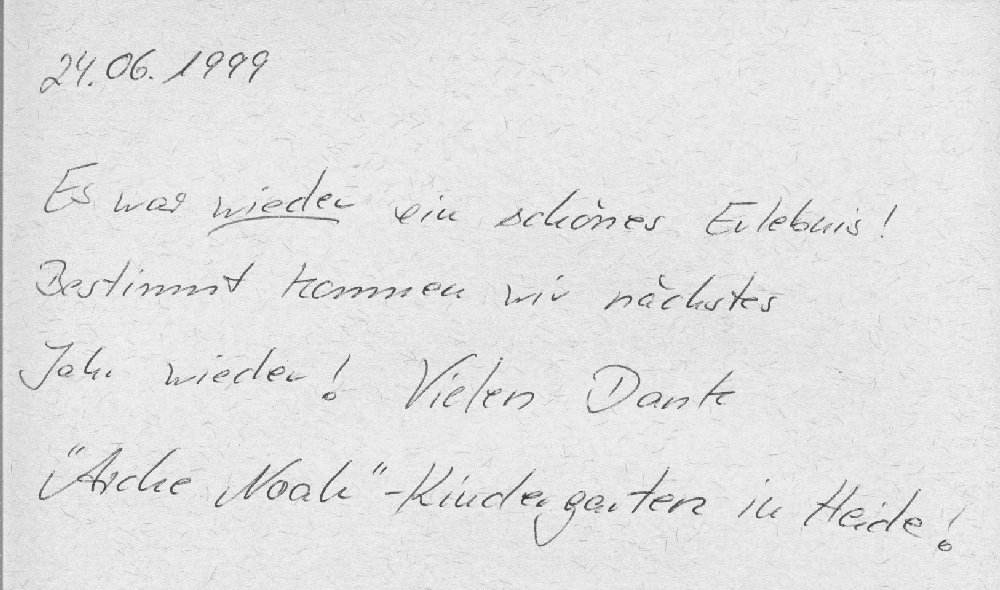 24.06.1999
Es war wieder ein schönes Erlebnis!
Bestimmt kommen wir nächstes
Jahr wieder! Vielen Dank
"Arche Noah"-Kindergarten in Heide!